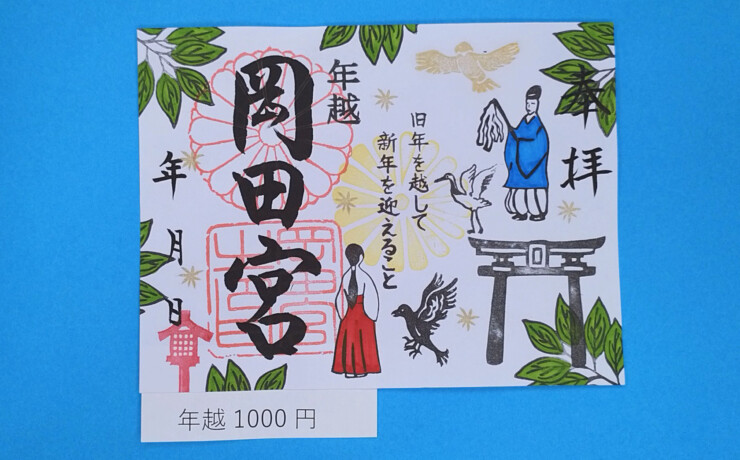 奉拝
旧年を越して
新年を迎えること
年越
岡田宮
年 月 日
年越 1000 円